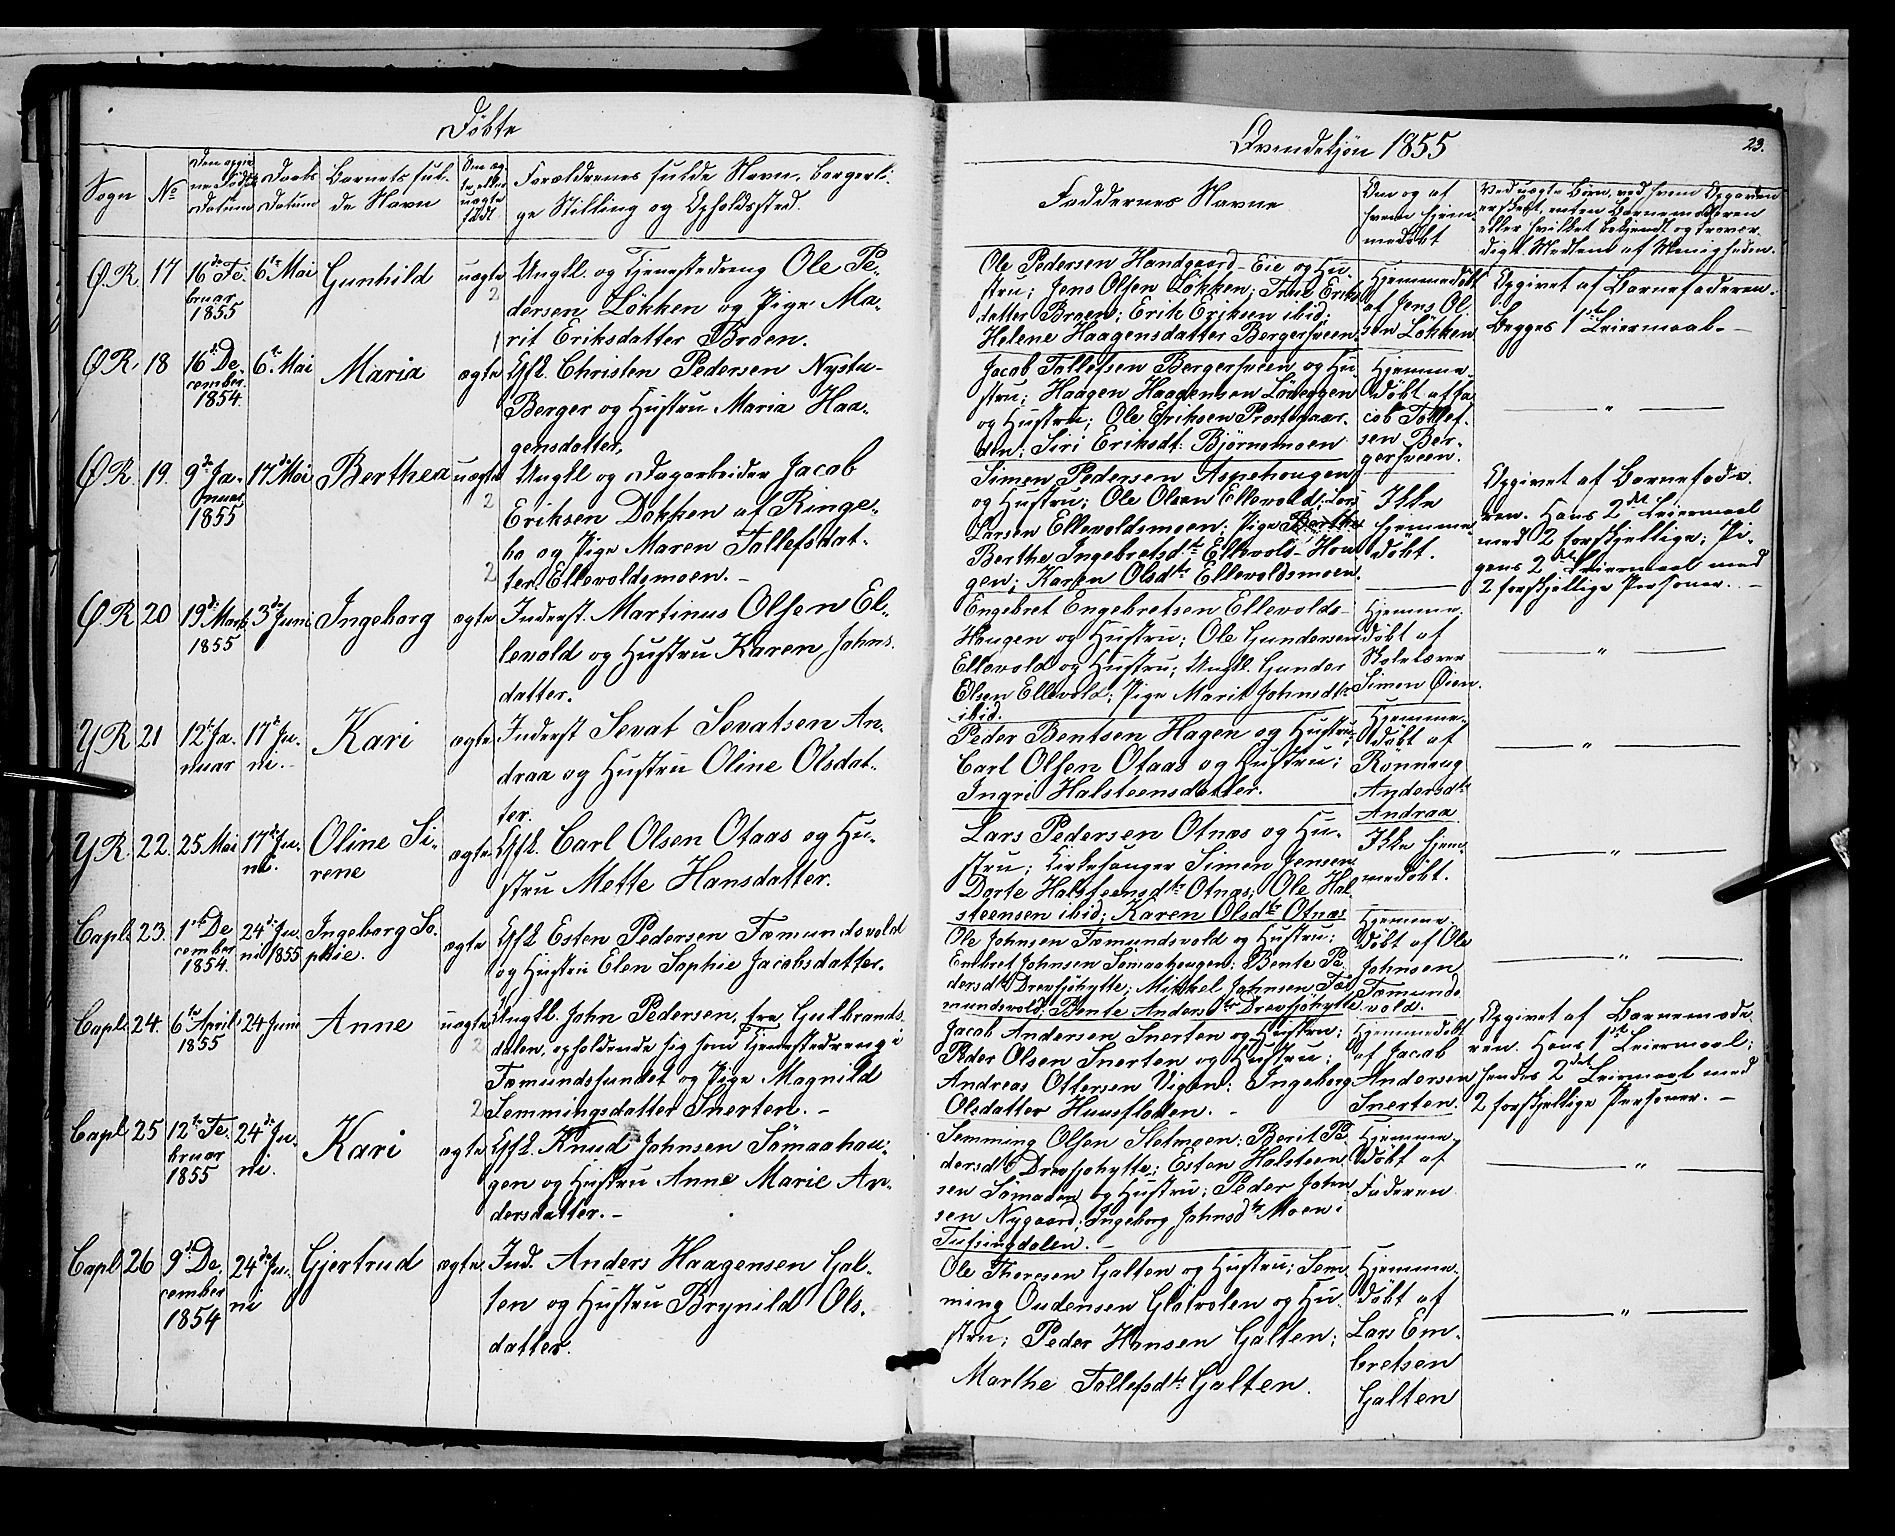 Døbte
Qvindekjøn 1855
23.
Sogn
No
Den opgivne Fødsels Datum
Daabs Datum
Barnets fulde Navn
Om ægte eller uægte født
Forældrenes fulde Navn, borgerlige Stilling og Opholdssted
Faddernes Navne
Om og af hvem hjemmedøbt
Ved uægte Børn, ved hvem Opgaven er skeet, enten Barnemoderen eller hvilket bekjendt og troværdigt Medlem af Menigheden.
Ø.R. 17 16de Februar 1855 6te Mai Gunhild uægte
2
Ungkl. og Tjenestedreng Ole Pe-
dersen Løkken og Pige Ma-
1
rit Eriksdatter Broen.
Ole Pedersen Handgaard-Eie og Hu-
stru; Jens Olsen Løkken; Eriks-
datter Broen; Erik Eriksen ibid;
Helene Haagensdatter Bergersveen
Hjemmedøbt
af Jens Ol-
sen Løkken
Opgivet af Barnefaderen.
Begges 1ste Leiermaal.-
Ø.R. 18 16de December 1854. 6te Mai Maria ægte
Gfl. Christen Pedersen Nystu-
Berger og Hustru Maria Haa-
gensdatter.
Jacob Tollefsen Bergersveen og Hu-
stru; Haagen Haagensen Løveggen
og Hustru; Ole Eriksen Prestegaar-
den; Siri Eriksdt. Bjørnsmoen
Hjemme-
døbt af Ja-
cob Tollef-
sen Ber-
gersveen.
— " —
Ø.R 19. 9de Januar 1855 17de Mai Berthea uægte
2
Ungkl og Dagarbeider Jacob
Eriksen Dokken af Ringe-
bo og Pige Maren Tollefsdat-
2
ter Ellevoldsmoen.-
Simen Pedersen Aspehougen
og Hustru; Ole Olsen Ellevold; Lars
Larsen Ellevoldsmoen; Pige Berthe
Berthe Ingebretsdtr Ellevold-Hou-
gen; Karen Olsdtr Ellevoldsmoen.
Ikke
hjemme-
døbt.
Opgivet af Barnefade-
ren. Hans 2det Leiermaal
med 2 forskjellige; Pi-
gens 2det Leiermaal med
2 forskjellige Personer.-
Ø.R 20 19de Marts 1855 3de Juni Ingeborg ægte
Inderst. Martinus Olsen El-
levold og Hustru Karen Johns-
datter.
Engebret Engebretsen Ellevolds-
Haugen og Hustru; Ole Gundersen
Ellevold og Hustru; Ungkl. Gunder
Olsen Ellevold; Pige Marit Johnsdtr
ibid.
Hjemme-
døbt af
Skolelærer
Simen Øien.
— " —
Y R 21 12te Januar 17de Juni.- Kari ægte
Inderst Sevat Sevatsen An-
draa og Hustru Oline Olsdat-
ter.
Peder Bentsen Hagen og Hustru;
Carl Olsen Otnas og Hustru;
Ingri Halsteensdatter.
Hjemme-
døbt af
Rønnaug
Andersdtr
Andraa
— " —
Y R. 22. 25 Mai 17de Juni. Oline Sirene ægte
Gfl. Carl Olsen Otnas og Hu-
stru Mette Hansdatter.
Lars Pedersen Otnæs og Hu-
stru; Kirkesanger Simen Jensen
Dorte Halsteensdtr Otnæs; Ole Hal-
steensen ibid; Karen Olsdtr Otnæs
Ikke hjem-
medøbt.
— " —
Capl. 23. 1ste December 1854. 24de Juni 1855 Ingeborg Sophie. ægte
Gfl Esten Pedersen Fæmundsvold
og Hustru Elen Sophie Jacobsdatter.
Ole Johnsen Fæmundsvold og Hustru;
Embret Johnsen Sømaahougen; Bente Pe-
dersdtr Drevsjøhytte; Mikkel Johnsen Fæ-
mundsvold; Bente Andersdtr Drevsjøhytte.
Hjemme-
døbt af Ole
Johnsen
Fæmunds-
vold.
— " —
Capl. 24. 6te April 1855 24 Juni Anne uægte
2
Ungkl. John Pedersen, fra Gulbrands-
dalen, opholdende sig som Tjenestedreng i
Fæmundssundet og Pige Magnild
2
Semmingsdatter Snerten.-
Jacob Andersen Snerten og Hustru;
Peder Olsen Snerten og Hustru;
Andreas Ottersen Vigen; Ingeborg
Olsdatter Huusfloten.-
Hjemmedøbt
af Jacob
Andersen
Snerten.
Opgivet af Barnemode-
ren. Hans 1ste Leiermaal;
hendes 2det Leiermaal med
2 forskjellige Personer.-
Capl. 25 12te Februar 1855 24de Juni. Kari ægte
Gfl. Knud Johnsen Sømaahou-
gen og Hustru Anne Marie An-
dersdatter.-
Semming Olsen Slotmoen; Berit Pe-
dersdtr Drevsjøhytte; Esten Halsteen-
sen Sømaaen og Hustru; Peder John-
sen Nygaard; Ingeborg Johnsdtr Moen i
Tufsingdalen.-
Hjemme-
døbt af
Faderen
— " —
Capl. 26 9de December 1854 24de Juni Gjertrud ægte
Ind. Anders Haagensen Gal-
ten og Hustru Brynild Ols-
datter.
Ole Thoresen Galten og Hustru; Sem-
ming Oudensen Gløtvolen og Hu-
stru; Peder Hansen Galten;
Marthe Tollefsdtr Galten.
Hjemme-
døbt af
Lars Em-
bretsen
Galten
— " —